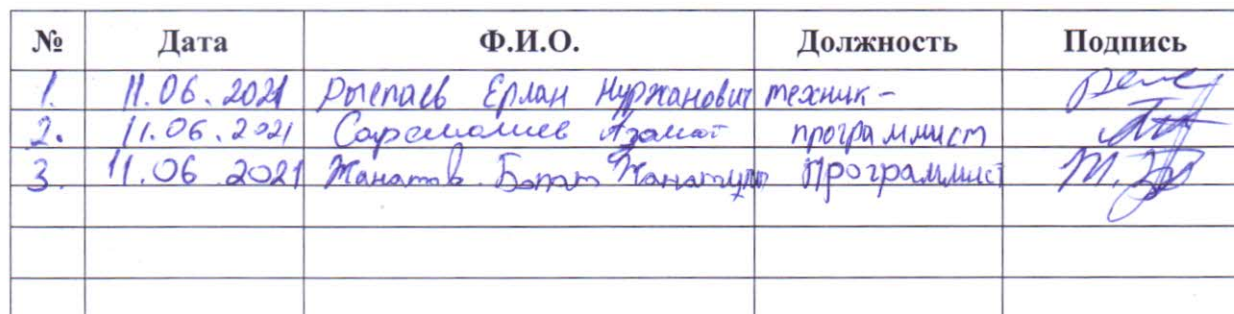 № Дата Ф.И.О. Должность Подпись
1. 11.06.2021 Рыспаев Ерлан Нуржанович техник-
2. 11.06.2021 Азамат программист
3. 11.06 2021 Жанатов Жанатұлы Программист